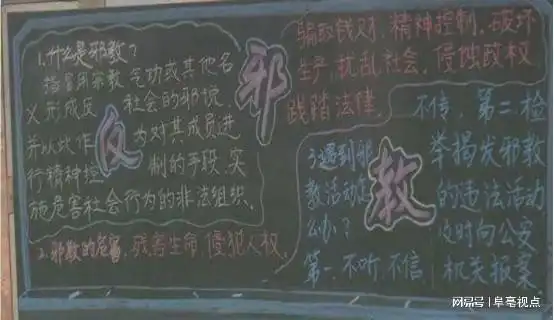 反
邪
教
1.什么是邪教?
指冒用宗教气功或其他名
义形成反 社会的邪说,
并以此作 为对其成员进
行精神控 制的手段,实
施危害社会行为的非法组织。
2.邪教的危害:残害生命,侵犯人权,
骗取钱财,精神控制,破坏
生产,扰乱社会,侵蚀政权
践踏法律。
3.遇到邪
教活动怎
么办?
第一,不听,不信
不传,第二,检
举揭发邪教
的违法活动
及时向公安
机关报案
搜狐号|阜亳视点